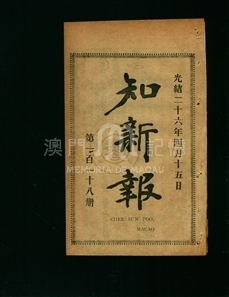 光緒二十六年四月十五日
知新報
第一百一十八册
CHEE SUN POO,
MACAO
澳門記憶
MEMÓRIA DE MACAU